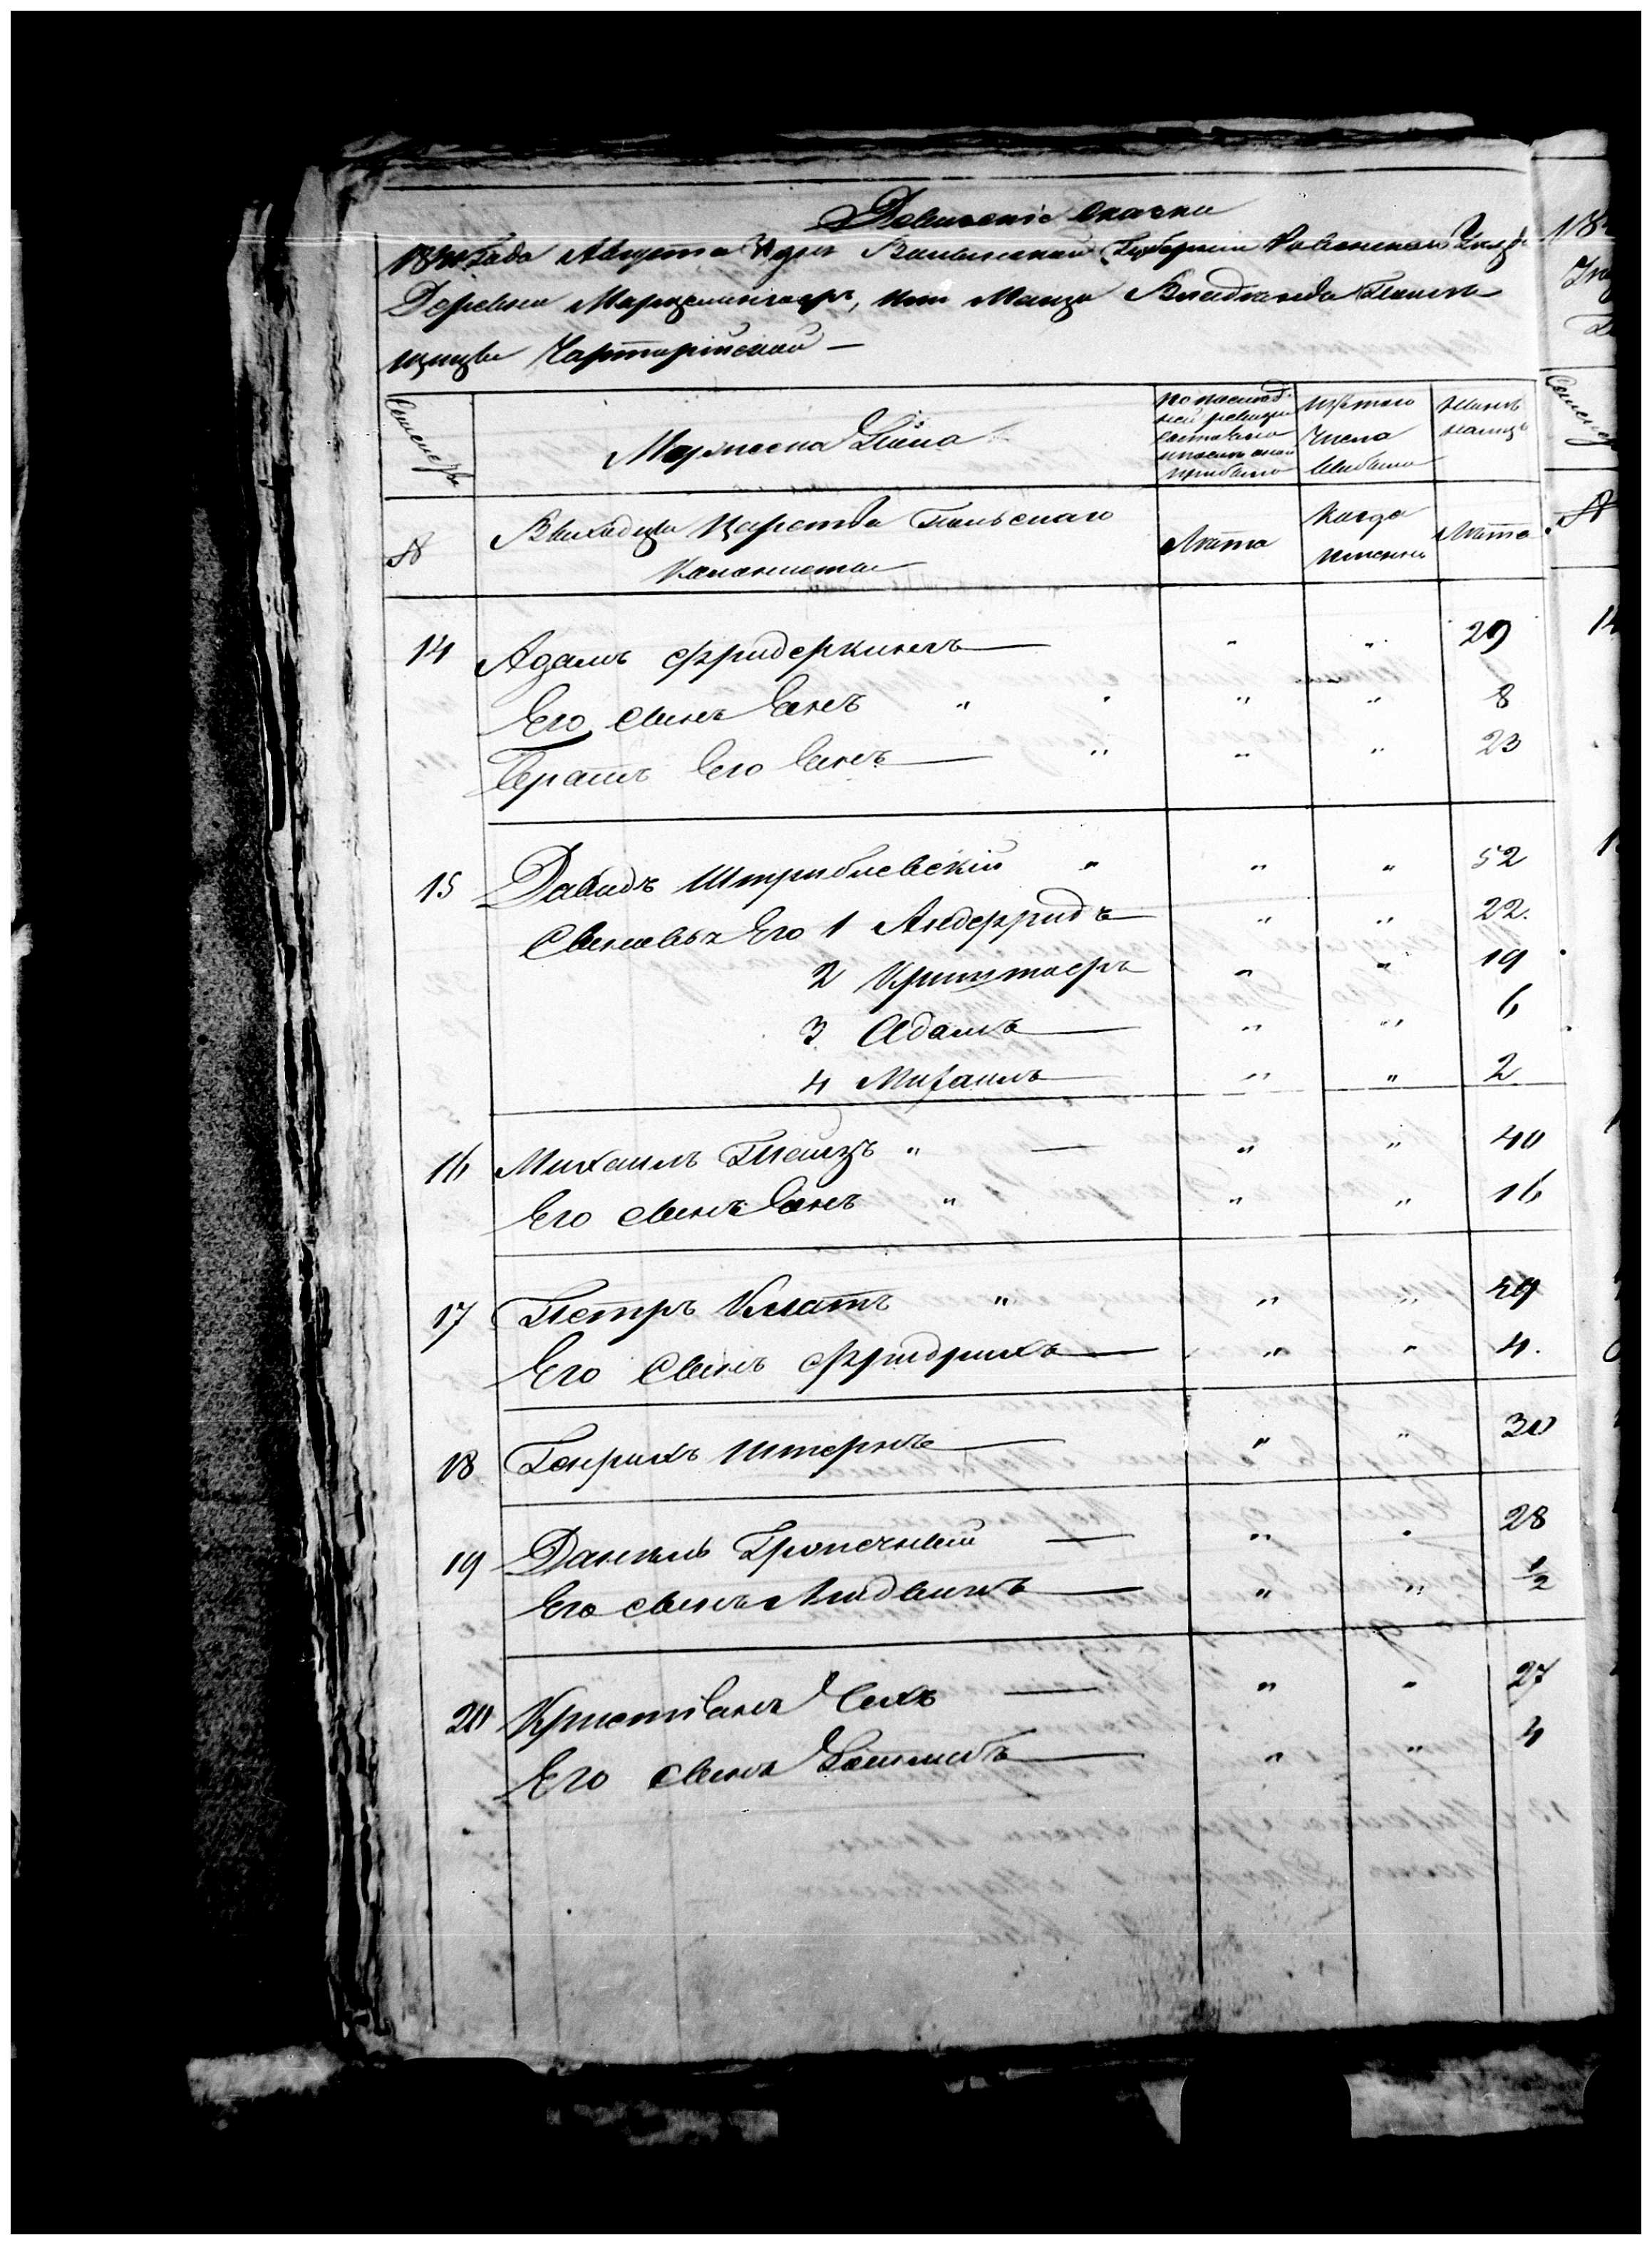 Ревизскіе Сказки
Года Августа дня Волынской Губерніи Ровенскаго Уезда
Деревни или Майдан Владенія
Чарторійской —
Семейства
Мужеска Пола
по послед-
ней ревизіи
состояло
и после оной
прибыло
Из того
Числа
выбыло
Ныне
на лицо
№
Выходцы Царства Польскаго
Колонисты
Лета
Когда
именно
Лета
14 Адамъ Фридеркинъ — " " 29
Его сынъ Янъ " " " " 8
Братъ Его Янъ — " " " 23
15 Давидъ Штриблевскій " " " 52
Сыновья Его 1 Андерридъ — " " 22.
2 Криштоеръ " " 19
3 Адамъ — " " 6
4 Михаилъ — " " 2
16 Михаилъ " — " " 40
Его сынъ Янъ " " " 16
17 Петръ Клатъ " " " 49
Его Сынъ Фридрихъ — " " 4.
18 Генрихъ Штернъ — " " 30
19 Данилъ — " " 28
Его сынъ Людвикъ — " " 1/2
20 Кристіянъ — " " 27
Его сынъ Готлибъ — " " 4